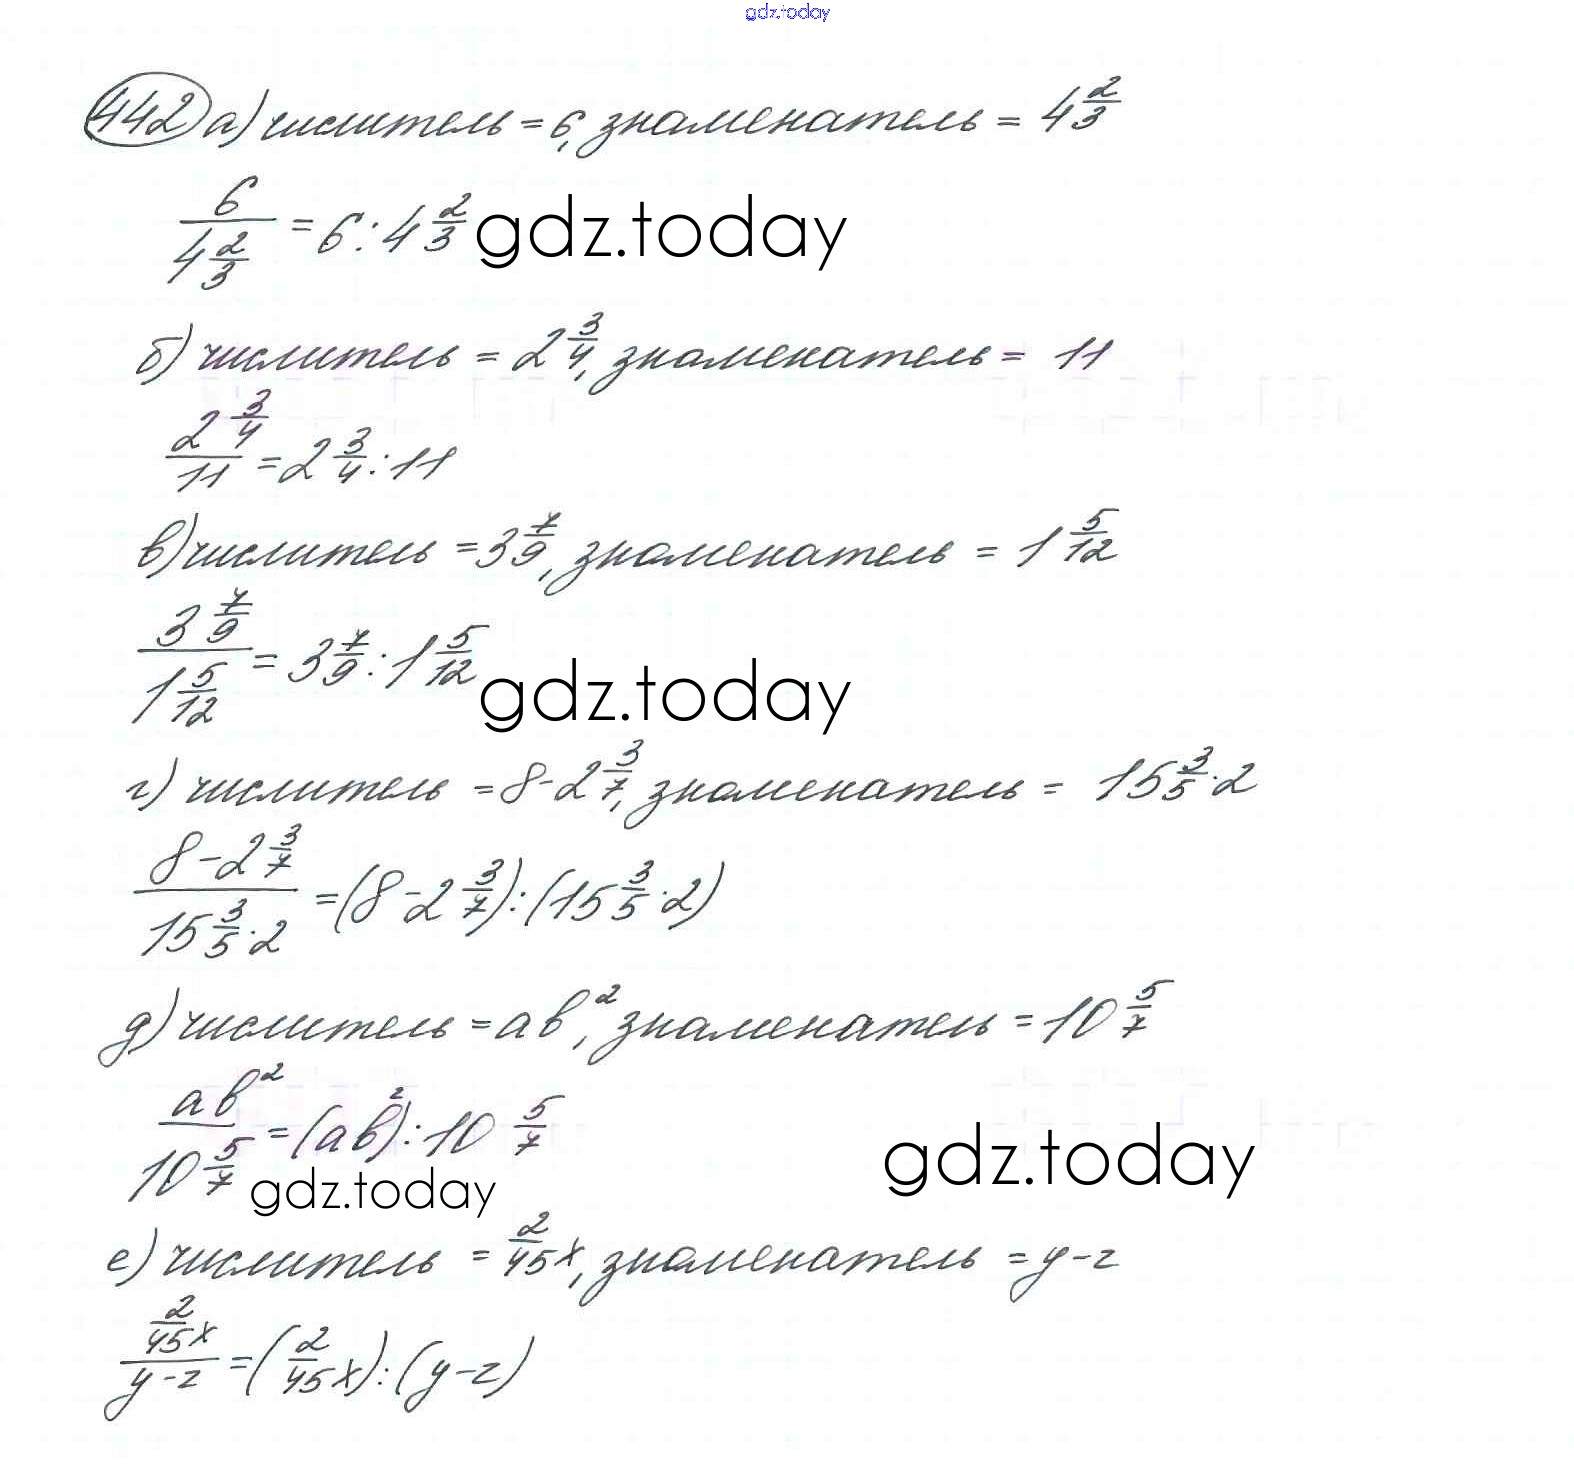 gdz.today
442 а) числитель = 6, знаменатель = 4 2/3
6/(4 2/3) = 6 : 4 2/3
gdz.today
б) числитель = 2 3/4, знаменатель = 11
(2 3/4)/11 = 2 3/4 : 11
в) числитель = 3 7/9, знаменатель = 1 5/12
(3 7/9)/(1 5/12) = 3 7/9 : 1 5/12
gdz.today
г) числитель = 8 - 2 3/7, знаменатель = 15 3/5 · 2
(8 - 2 3/7)/(15 3/5 · 2) = (8 - 2 3/7) : (15 3/5 · 2)
д) числитель = ab², знаменатель = 10 5/7
ab²/(10 5/7) = (ab²) : 10 5/7
gdz.today
gdz.today
е) числитель = 2/45 x, знаменатель = y - z
(2/45 x)/(y - z) = (2/45 x) : (y - z)